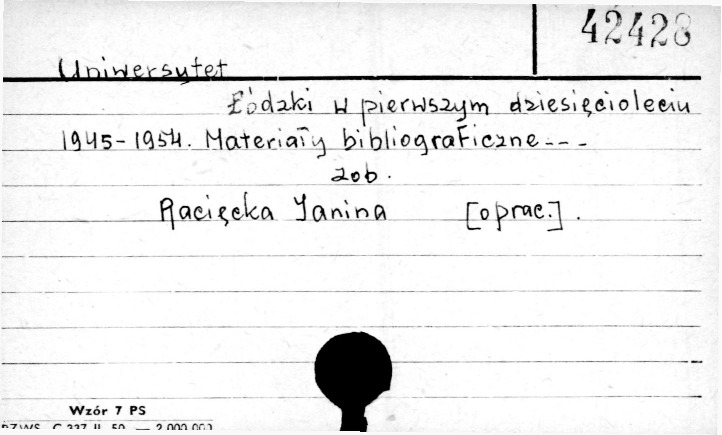 42428
Uniwersytet
Łódzki w pierwszym dziesięcioleciu
1945-1954. Materiały bibliograficzne---
zob.
Racięcka Janina [oprac.].
Wzór 7 PS
PZWS C 337 II 50 — 2.000.000